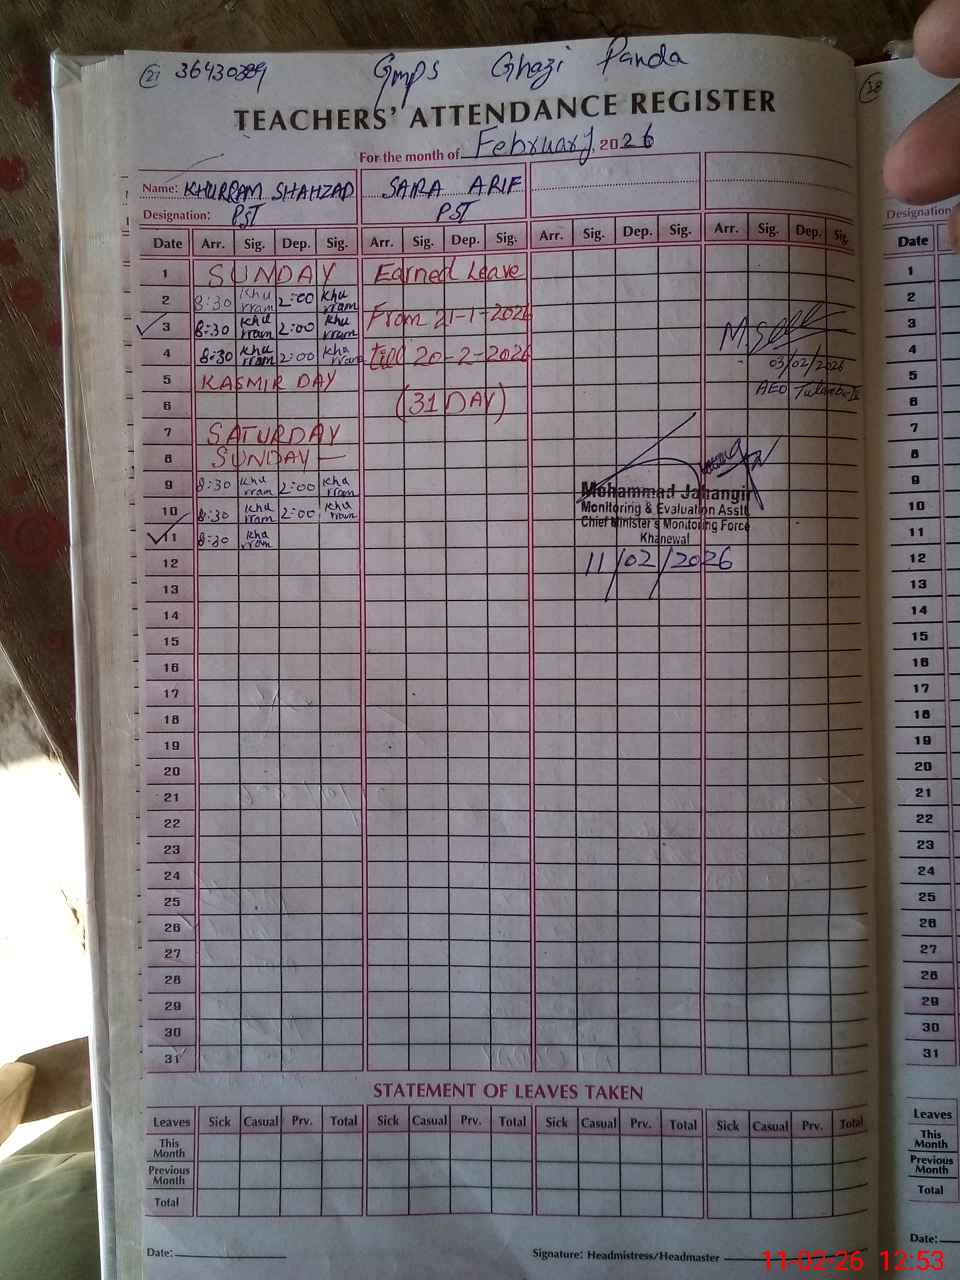 21 36430389 Gmps Ghazi Panda
TEACHERS' ATTENDANCE REGISTER
For the month of February, 2026
Name: KHURRAM SHAHZAD SAIRA ARIF
Designation: PST PST
Date Arr. Sig. Dep. Sig. Arr. Sig. Dep. Sig. Arr. Sig. Dep. Sig. Arr. Sig. Dep. Sig.
1 SUNDAY Earned Leave
2 8:30 Khurram 2:00 Khurram
From 21-1-2026
3 8:30 Khurram 2:00 Khurram
4 8:30 Khurram 2:00 Khurram till 20-2-2026
03/02/2026
5 KASMIR DAY
AEO
6 (31 DAY)
7 SATURDAY
8 SUNDAY
9 8:30 Khurram 2:00 Khurram
Mohammad Jahangir
10 8:30 Khurram 2:00 Khurram
Monitoring & Evaluation Asstt
Chief Minister's Monitoring Force
11 8:30 Khurram
Khanewal
12 11/02/2026
13
14
15
16
17
18
19
20
21
22
23
24
25
26
27
28
29
30
31
STATEMENT OF LEAVES TAKEN
Leaves Sick Casual Prv. Total Sick Casual Prv. Total Sick Casual Prv. Total Sick Casual Prv. Total
This Month
Previous Month
Total
Date: Signature: Headmistress/Headmaster
Designation
Date
1
2
3
4
5
6
7
8
9
10
11
12
13
14
15
16
17
18
19
20
21
22
23
24
25
26
27
28
29
30
31
Leaves
This Month
Previous Month
Total
Date:
11-02-26 12:53